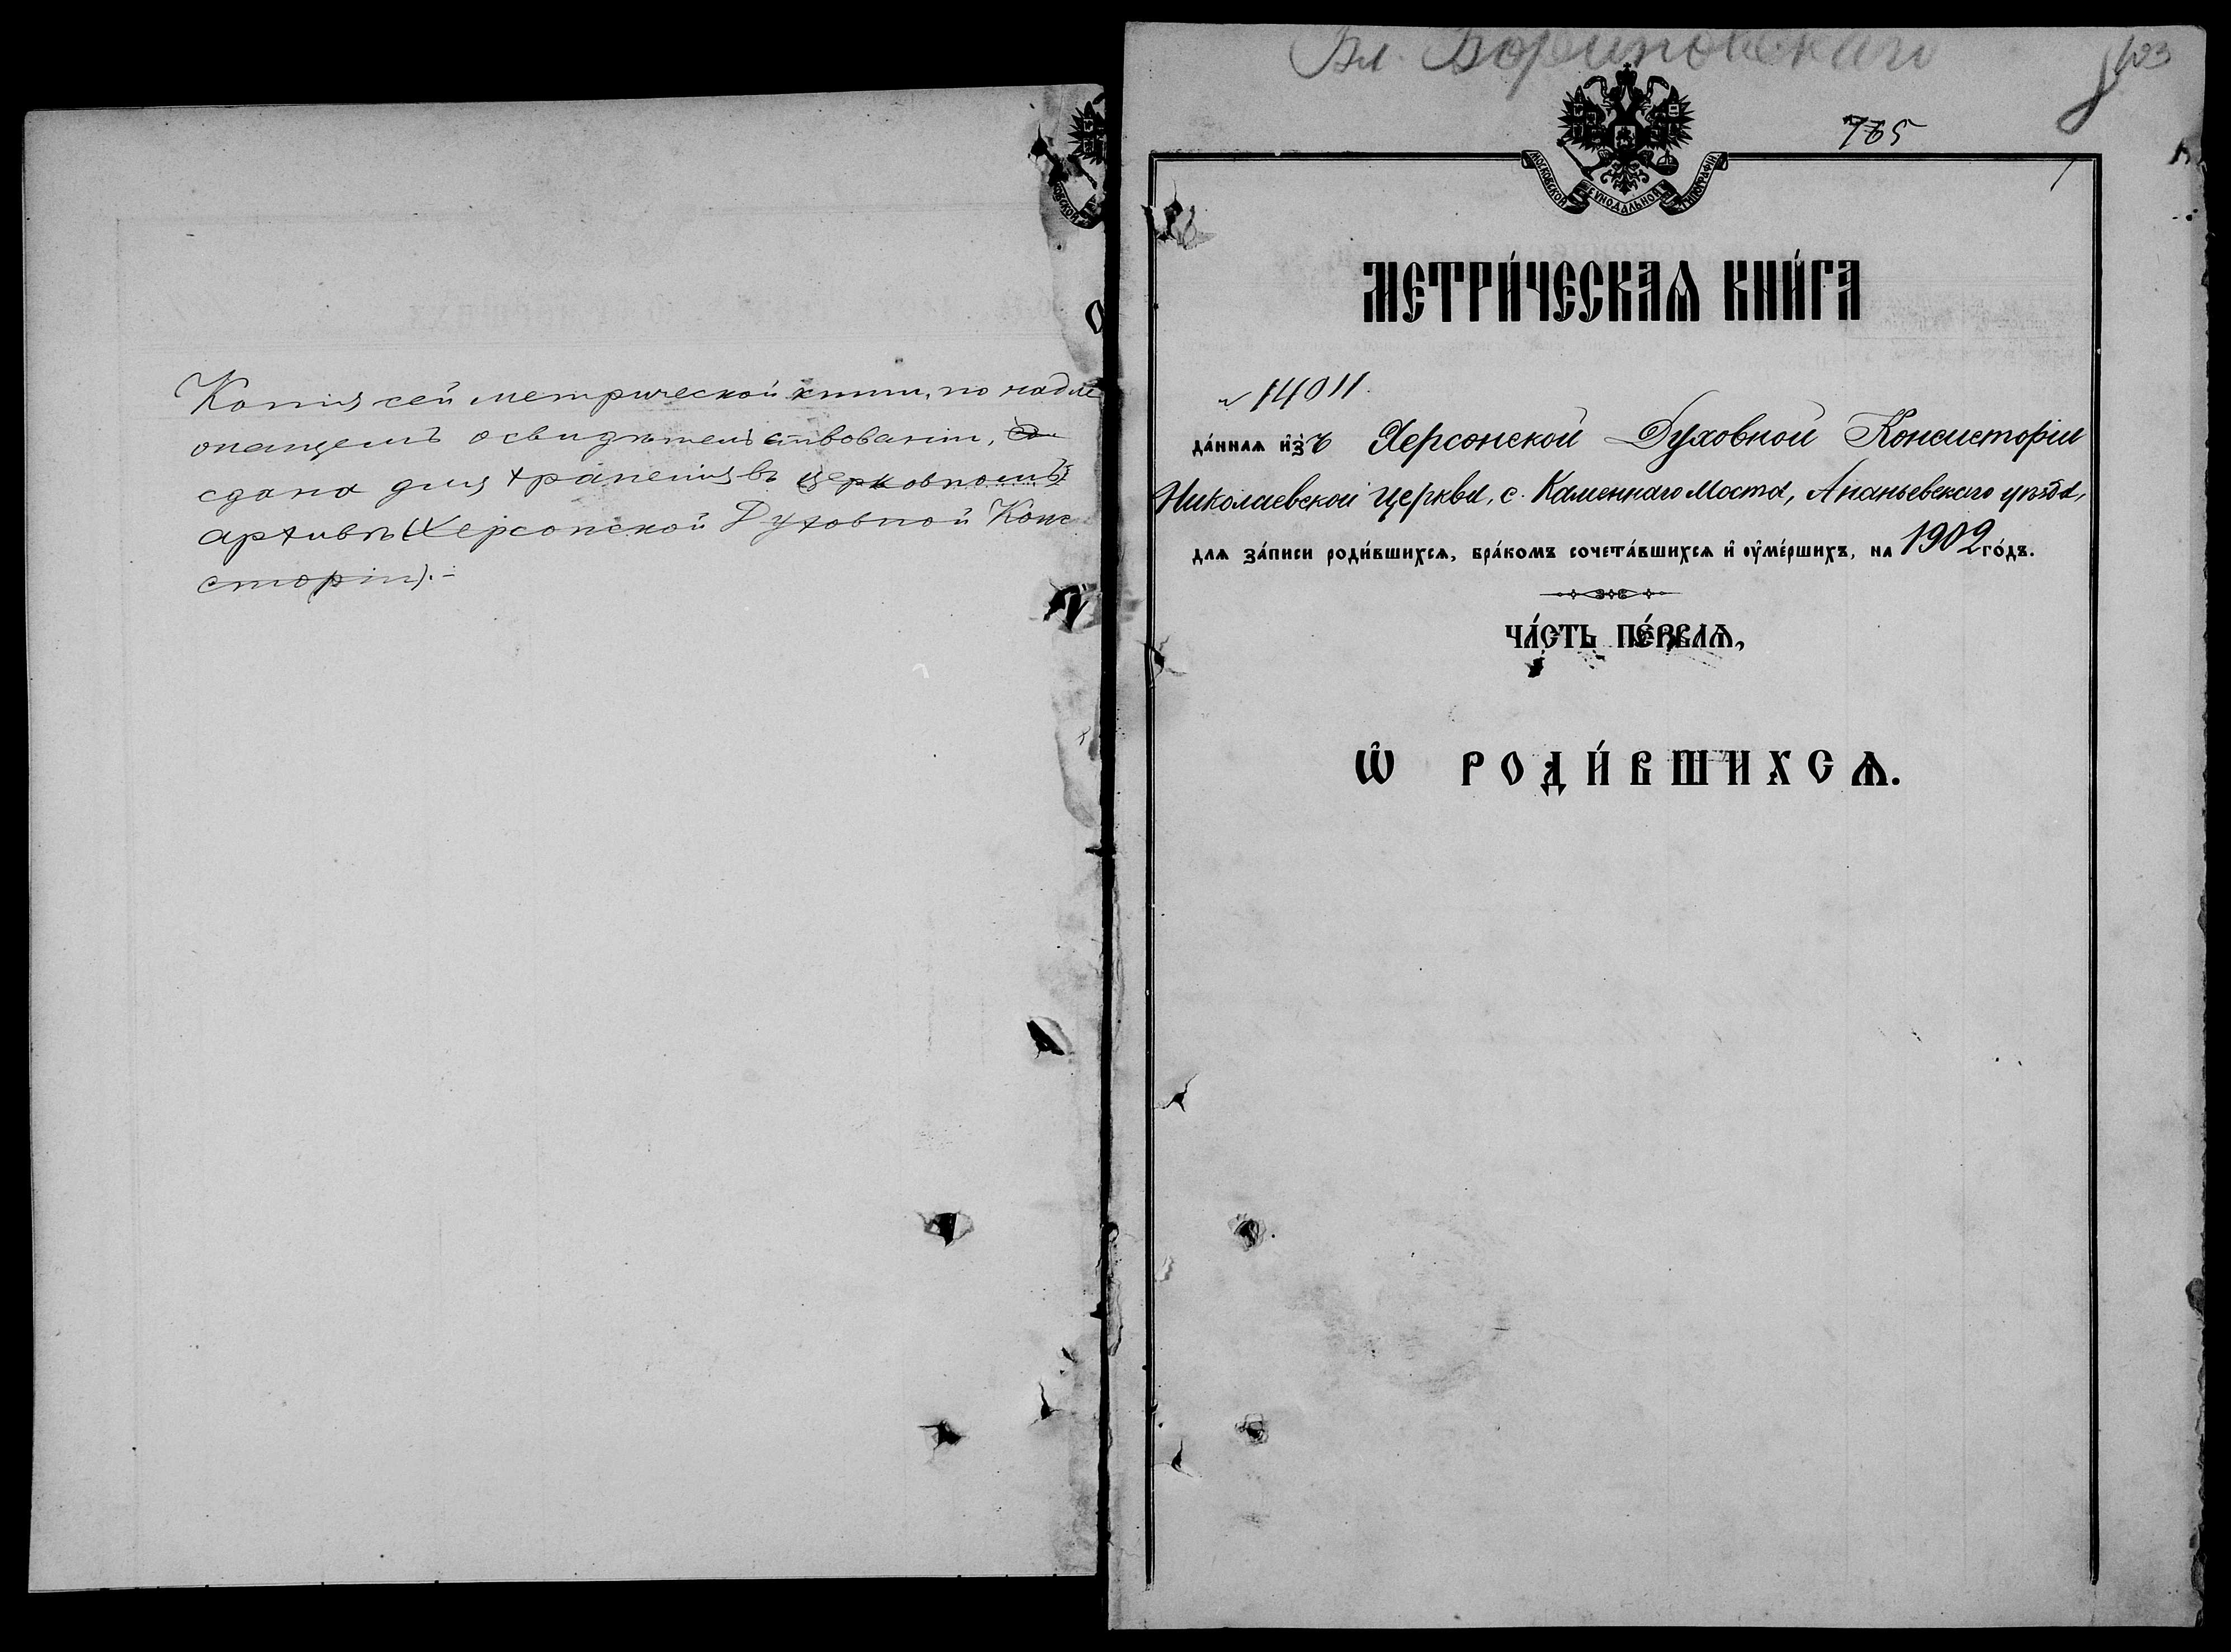 Копія сей метрической книги, по надле
сдана для храненія въ церковномъ
архивѣ (Херсонской Духовной Конс
сторіи).-
Бл.
765
МОСКОВСКОЙ СѴНОДАЛЬНОЙ ТИПОГРАФІИ
МЕТРИ́ЧЕСКАѦ КНИ́ГА
№ 14011.
да́ннаѧ и҆зъ Херсонской Духовной Консисторіи
Николаевской церкви, с. Каменнаго Моста, Ананьевскаго уѣзда,
длѧ за́писи роди́вшихсѧ, бра́комъ сочета́вшихсѧ и҆ оу҆ме́ршихъ, на 1902 го́дъ.
ЧА́СТЬ ПЕ́РВАѦ,
Ѽ РОДИ́ВШИХСѦ.